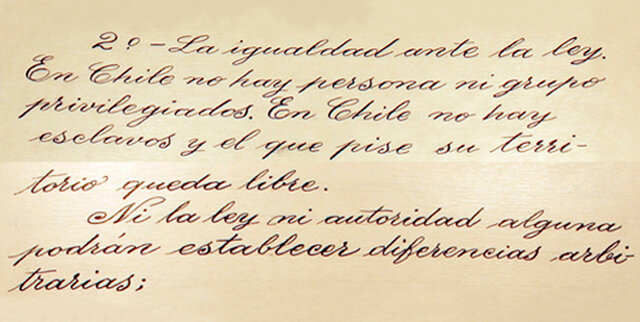 2º - La igualdad ante la ley.
En Chile no hay persona ni grupo
privilegiados. En Chile no hay
esclavos y el que pise su terri-
torio queda libre.
Ni la ley ni autoridad alguna
podrán establecer diferencias arbi-
trarias;